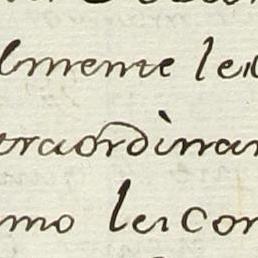 lmente le
traordinar
mo lei con